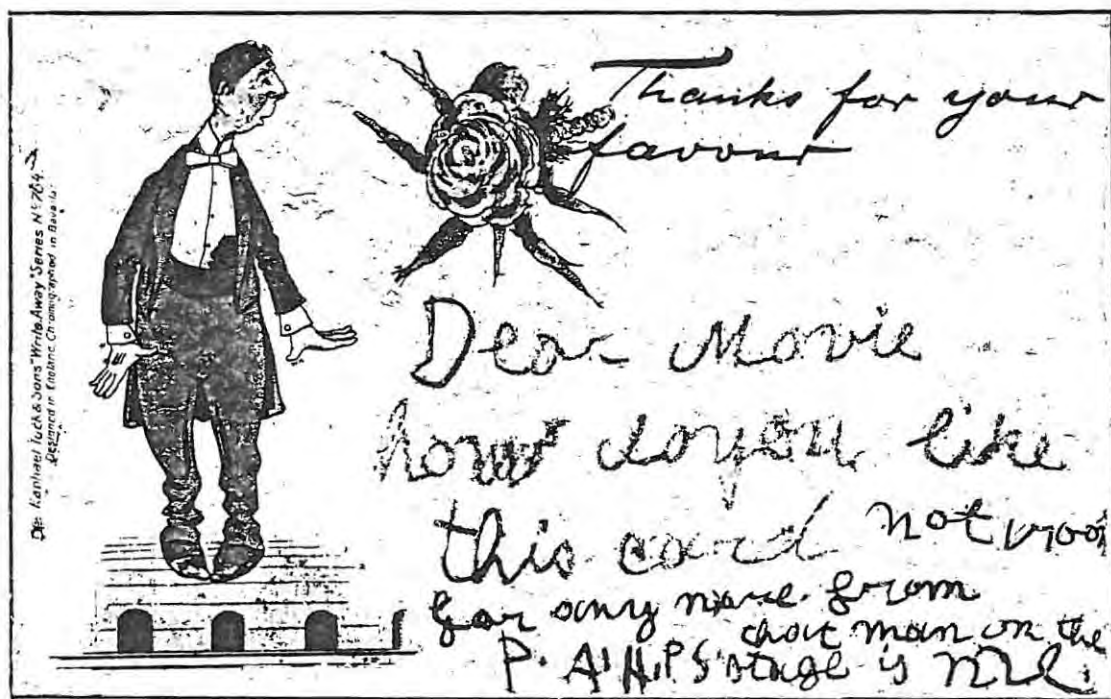 Raphael Tuck & Sons "Write Away" Series No 764
Designed in England. Chromographed in Bavaria
Thanks for your
favour
Dear Movie
how doyou like
this card not room
for any more from
that man on the
P.A.H.P.S stage is me